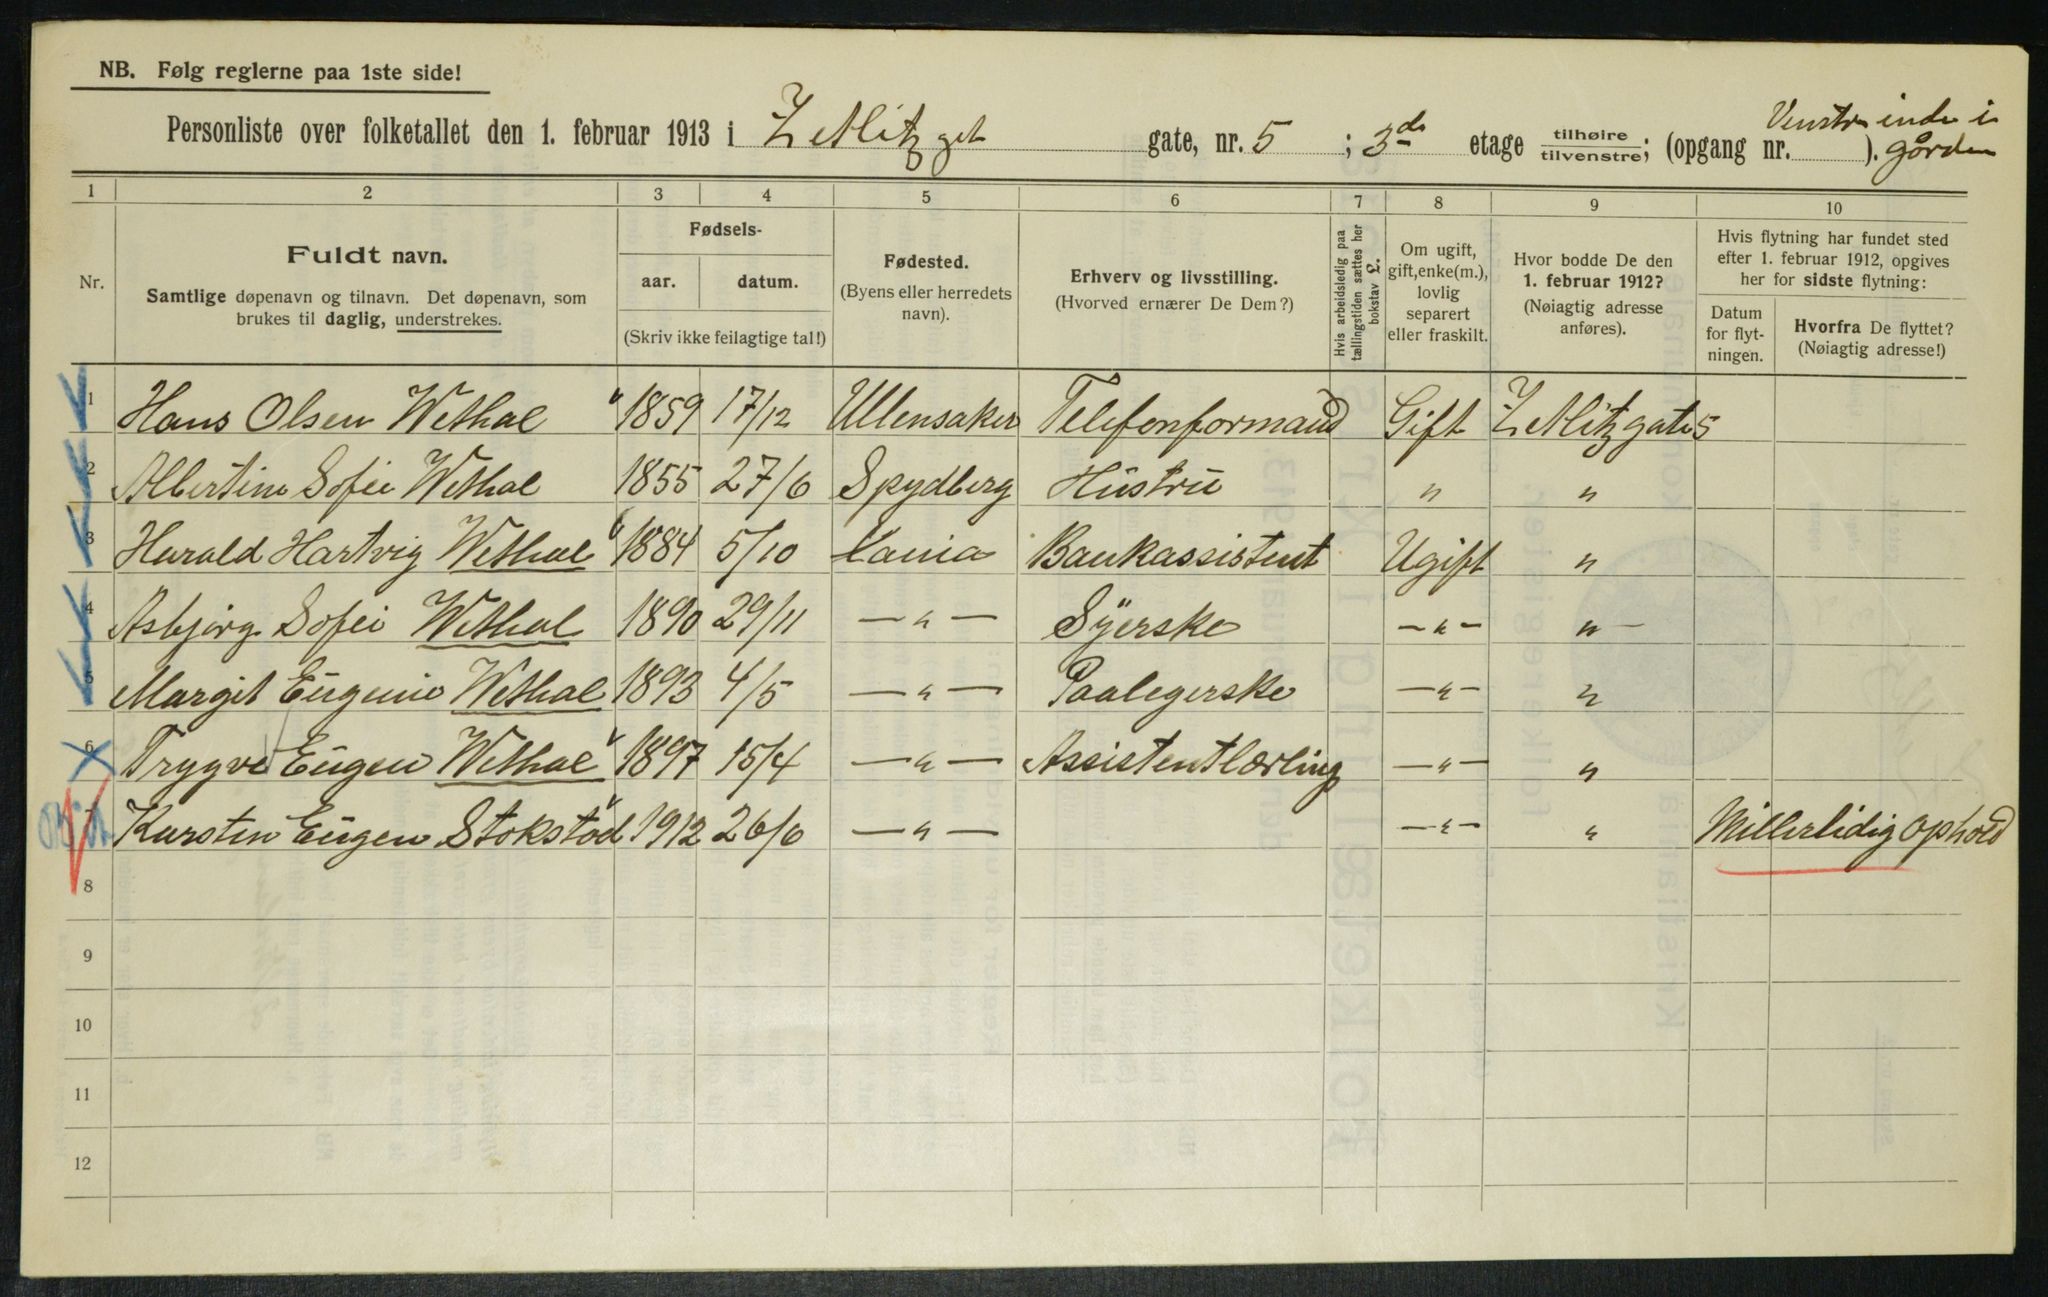 NB. Følg reglerne paa 1ste side!
Personliste over folketallet den 1. februar 1913 i Zetlitz get gate, nr. 5 ; 3de etage tilhøire / tilvenstre; (opgang nr. ). Venstre inde i gården
1 2 3 4 5 6 7 8 9 10
Nr.
Fuldt navn.
Samtlige døpenavn og tilnavn. Det døpenavn, som
brukes til daglig, understrekes.
Fødsels-
aar. datum.
(Skriv ikke feilagtige tal!)
Fødested.
(Byens eller herredets
navn).
Erhverv og livsstilling.
(Hvorved ernærer De Dem?)
Hvis arbeidsledig paa
tællingstiden sættes her
bokstav L.
Om ugift,
gift, enke(m.),
lovlig
separert
eller fraskilt.
Hvor bodde De den
1. februar 1912?
(Nøiagtig adresse
anføres).
Hvis flytning har fundet sted
efter 1. februar 1912, opgives
her for sidste flytning:
Datum
for flyt-
ningen.
Hvorfra De flyttet?
(Nøiagtig adresse!)
1 Hans Olsen Wethal 1859 17/12 Ullensaker Telefonformand Gift Zetlitzgate 5
2 Albertine Sofie Wethal 1855 27/6 Spydberg Hustru " "
3 Harald Hartvig Wethal 1884 5/10 Kania Bankassistent Ugift "
4 Asbjørg Sofie Wethal 1890 29/11 — " — Syerske — " — "
5 Margit Eugenie Wethal 1893 4/5 — " — Paalegerske — " — "
6 Trygve Eugen Wethal 1897 15/4 — " — Assistentlærling — " — "
7 Karsten Eugen Stokstad 1912 26/6 — " — — " — " Millerlidig Ophold
8
9
10
11
12